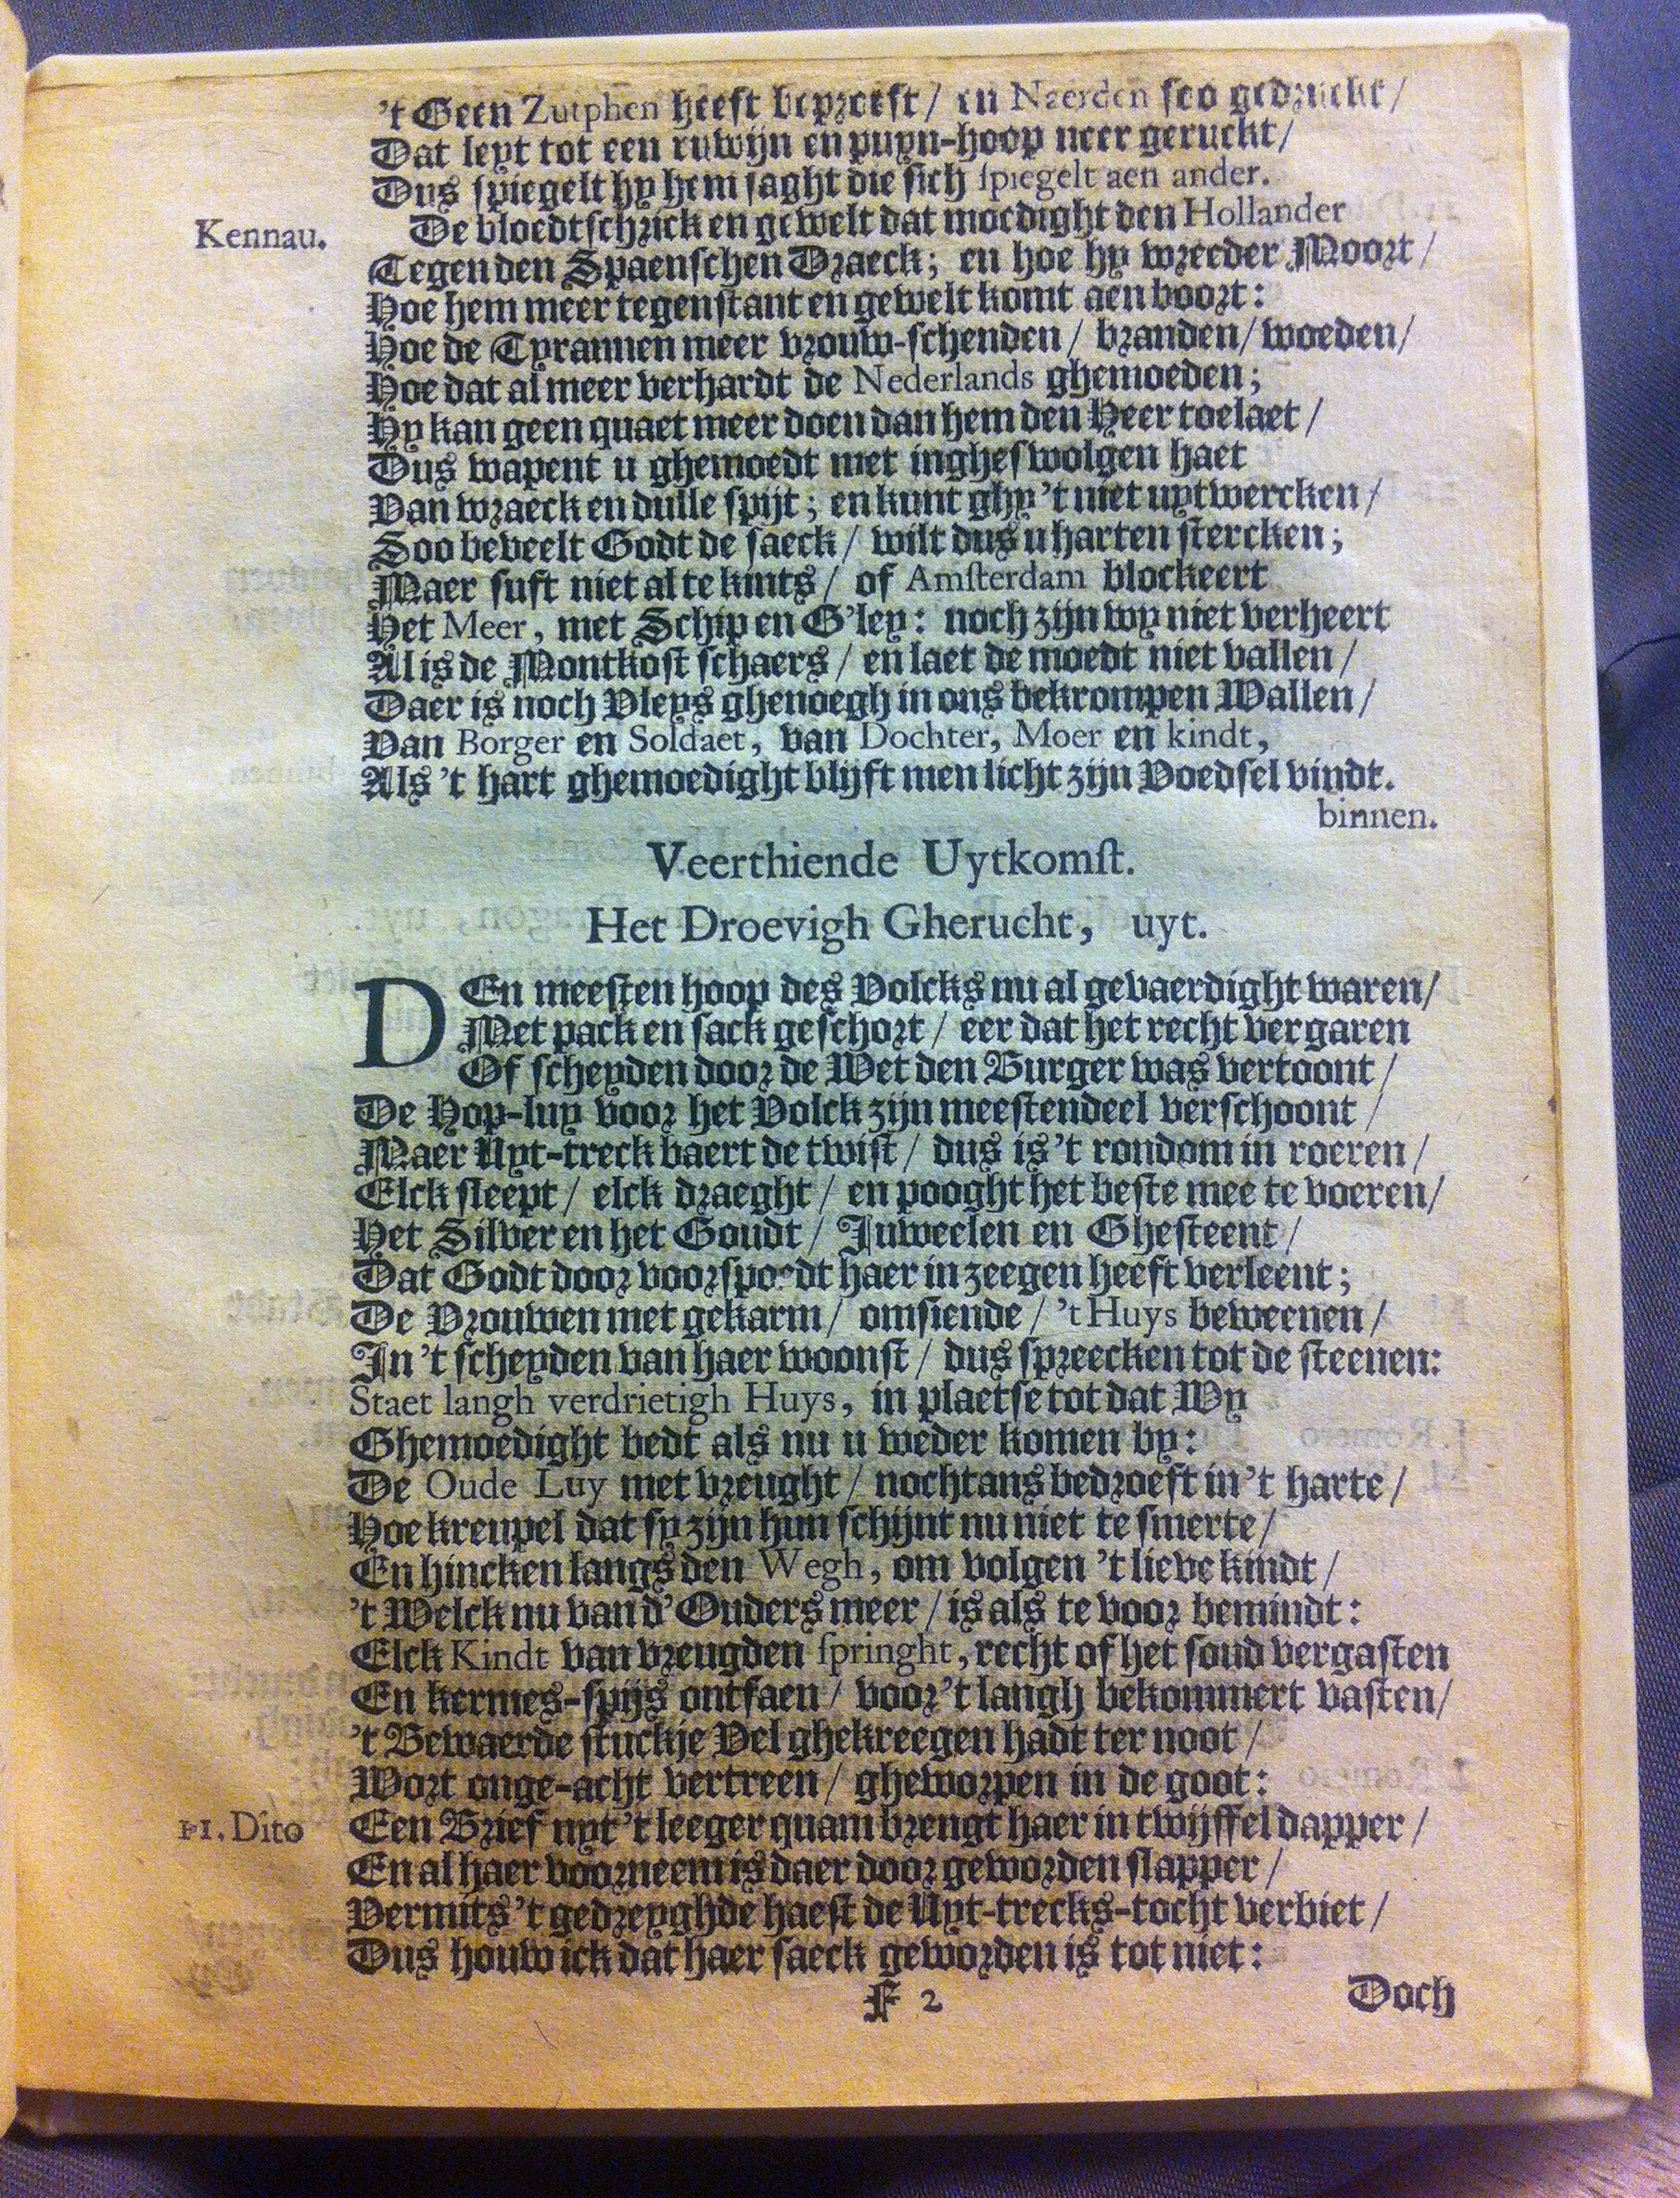 't Geen Zutphen heeft beproeft / en Naerden soo gedruckt /
Dat leyt tot een ruwijn en puyn-hoop neer geruckt /
Dus spiegelt hy hem saght die sich spiegelt aen ander.
Kennau. De bloedtschrick en gewelt dat moedight den Hollander
Tegen den Spaenschen Draeck; en hoe hy wreeder Moort /
Hoe hem meer tegenstant en gewelt komt aen boort:
Hoe de Tyrannen meer vrouw-schenden / branden / woeden /
Hoe dat al meer verhardt de Nederlands ghemoeden;
Hy kan geen quaet meer doen dan hem den Heer toelaet /
Dus wapent u ghemoedt met ingheswolgen haet
Van wraeck en dulle spijt; en kunt ghy 't niet uytwercken /
Soo beveelt Godt de saeck / wilt dus u harten stercken;
Maer suft niet al te kints / of Amsterdam blockeert
Het Meer, met Schip en G'ley: noch zijn wy niet verheert
Al is de Montkost schaers / en laet de moedt niet vallen /
Daer is noch Vleys ghenoegh in ons bekrompen Wallen /
Van Borger en Soldaet, van Dochter, Moer en kindt,
Als 't hart ghemoedight blijft men licht zijn Voedsel vindt.
binnen.
Veerthiende Uytkomst.
Het Droevigh Gherucht, uyt.
DEn meesten hoop des Volcks nu al gevaerdight waren /
Met pack en sack geschort / eer dat het recht vergaren
Of scheyden door de Wet den Burger was vertoont /
De Hop-luy voor het Volck zijn meestendeel verschoont /
Maer Uyt-treck baert de twist / dus is 't rondom in roeren /
Elck sleept / elck draeght / en pooght het beste mee te voeren /
Het Silver en het Goudt / Juweelen en Ghesteent /
Dat Godt door voorspoedt haer in zeegen heeft verleent;
De Vrouwen met gekarm / omsiende / 't Huys beweenen /
In 't scheyden van haer woonst / dus spreecken tot de steenen:
Staet langh verdrietigh Huys, in plaetse tot dat Wy
Ghemoedight bedt als nu u weder komen by:
De Oude Luy met vreught / nochtans bedroeft in 't harte /
Hoe kreupel dat sy zijn hun schijnt nu niet te smerte /
En hincken langs den Wegh, om volgen 't lieve kindt /
't Welck nu van d'Ouders meer / is als te voor bemindt:
Elck Kindt van vreugden springht, recht of het soud vergasten
En kermes-spijs ontfaen / voor 't langh bekommert vasten /
't Bewaerde stuckje Vel ghekreegen hadt ter noot /
Wort onge-acht vertreen / gheworpen in de goot:
11. Dito Een Brief uyt 't leeger quam brengt haer in twijffel dapper /
En al haer voorneem is daer door geworden slapper /
Vermits 't gedreyghde haest de Uyt-trecks-tocht verbiet /
Dus houw ick dat haer saeck geworden is tot niet:
F 2 Doch